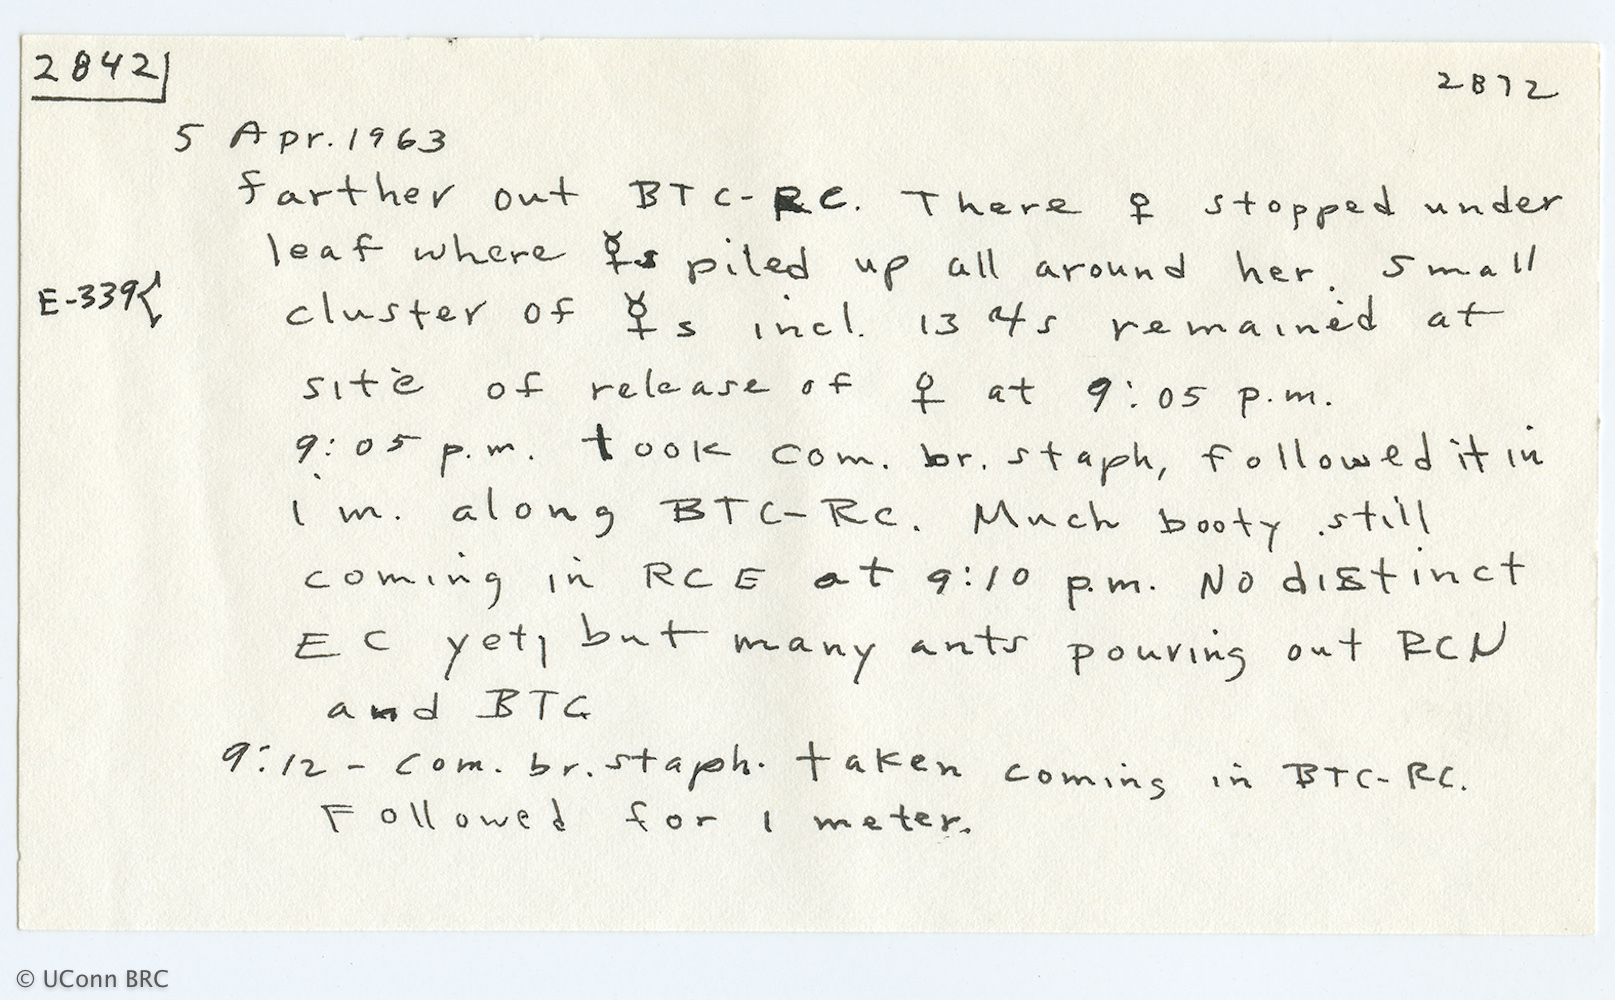 2842
2872
5 Apr. 1963
farther out BTC-RC. There ♀ stopped under
leaf where ☿s piled up all around her. Small
E-339{
cluster of ☿s incl. 13 4s remained at
site of release of ♀ at 9:05 p.m.
9:05 p.m. took com. br. staph, followed it in
1 m. along BTC-RC. Much booty still
coming in RCE at 9:10 p.m. No distinct
EC yet, but many ants pouring out RCN
and BTC
9:12 - Com. br. staph. taken coming in BTC-RC.
Followed for 1 meter.
© UConn BRC